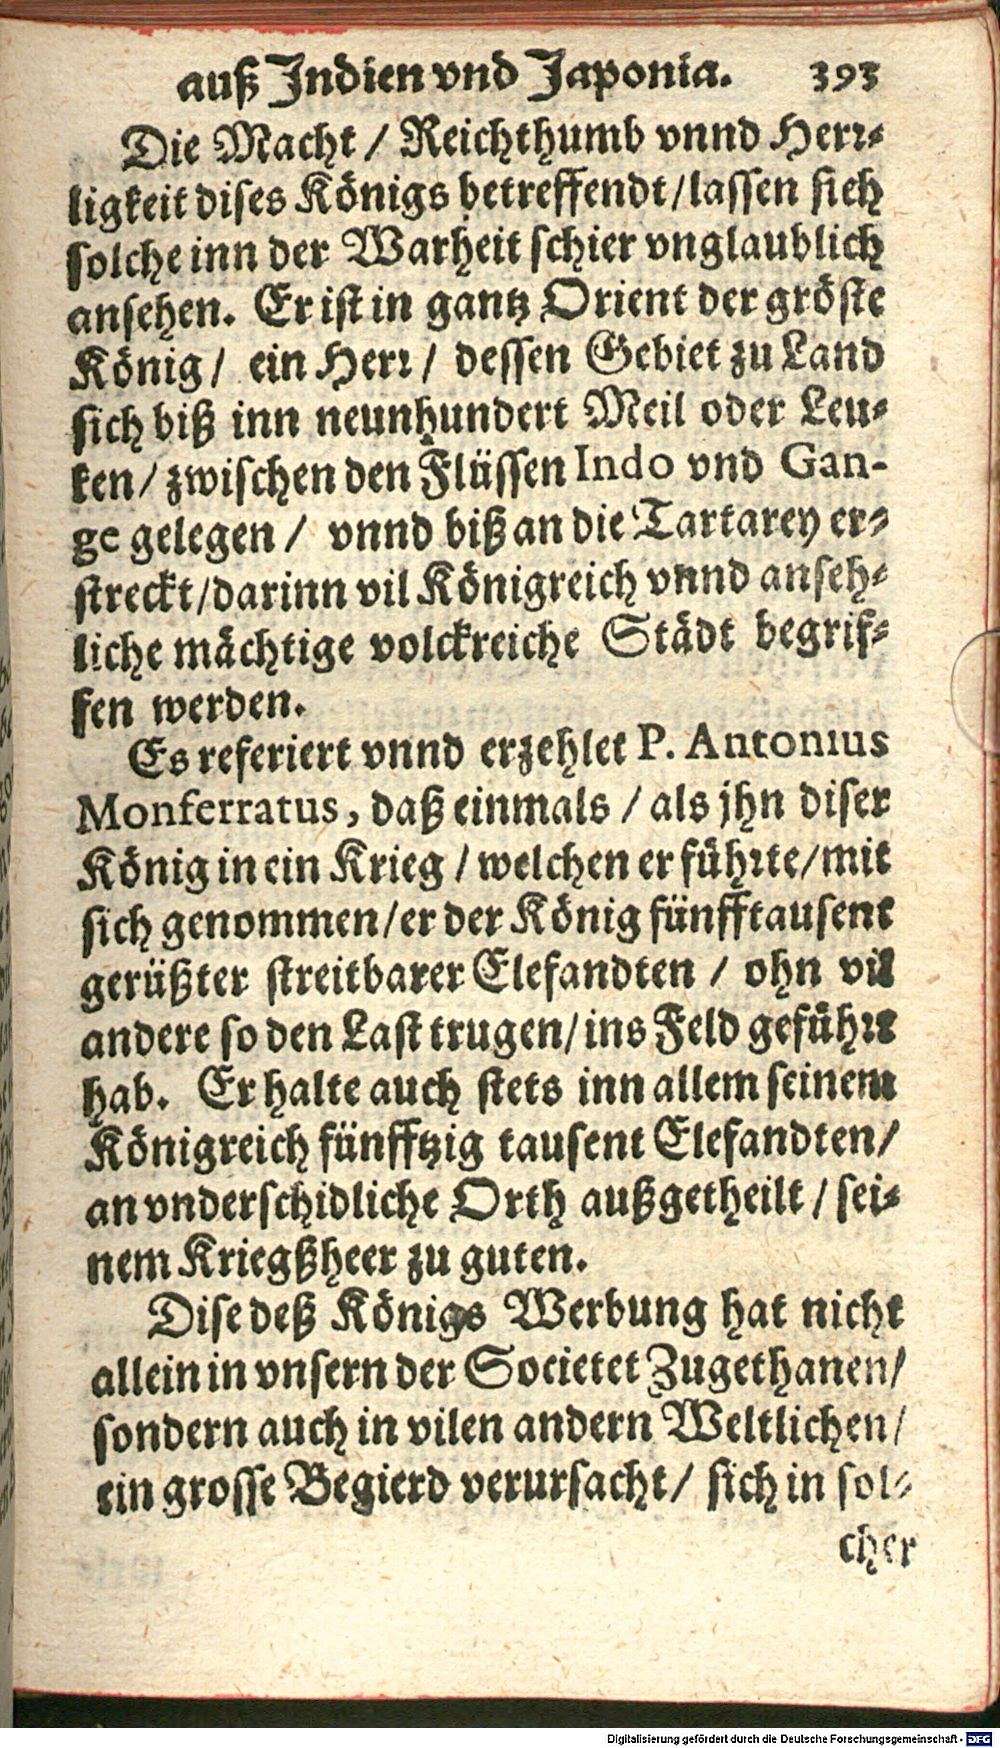 auß Indien vnd Japonia. 393
Die Macht / Reichthumb vnnd Herr-
ligkeit dises Königs betreffendt / lassen sich
solche inn der Warheit schier vnglaublich
ansehen. Er ist in gantz Orient der gröste
König / ein Herr / dessen Gebiet zu Land
sich biß inn neunhundert Meil oder Leu-
ken / zwischen den Flüssen Indo vnd Gan-
ge gelegen / vnnd biß an die Tartarey er-
streckt / darinn vil Königreich vnnd anseh-
liche mächtige volckreiche Städt begrif-
fen werden.
Es referiert vnnd erzehlet P. Antonius
Monferratus, daß einmals / als jhn diser
König in ein Krieg / welchen er führte / mit
sich genommen / er der König fünfftausent
gerüßter streitbarer Elefandten / ohn vil
andere so den Last trugen / ins Feld geführt
hab. Er halte auch stets inn allem seinem
Königreich fünfftzig tausent Elefandten /
an vnderschidliche Orth außgetheilt / sei-
nem Kriegßheer zu guten.
Dise deß Königs Werbung hat nicht
allein in vnsern der Societet Zugethanen /
sondern auch in vilen andern Weltlichen /
ein grosse Begierd verursacht / sich in sol-
cher
Digitalisierung gefördert durch die Deutsche Forschungsgemeinschaft - DFG